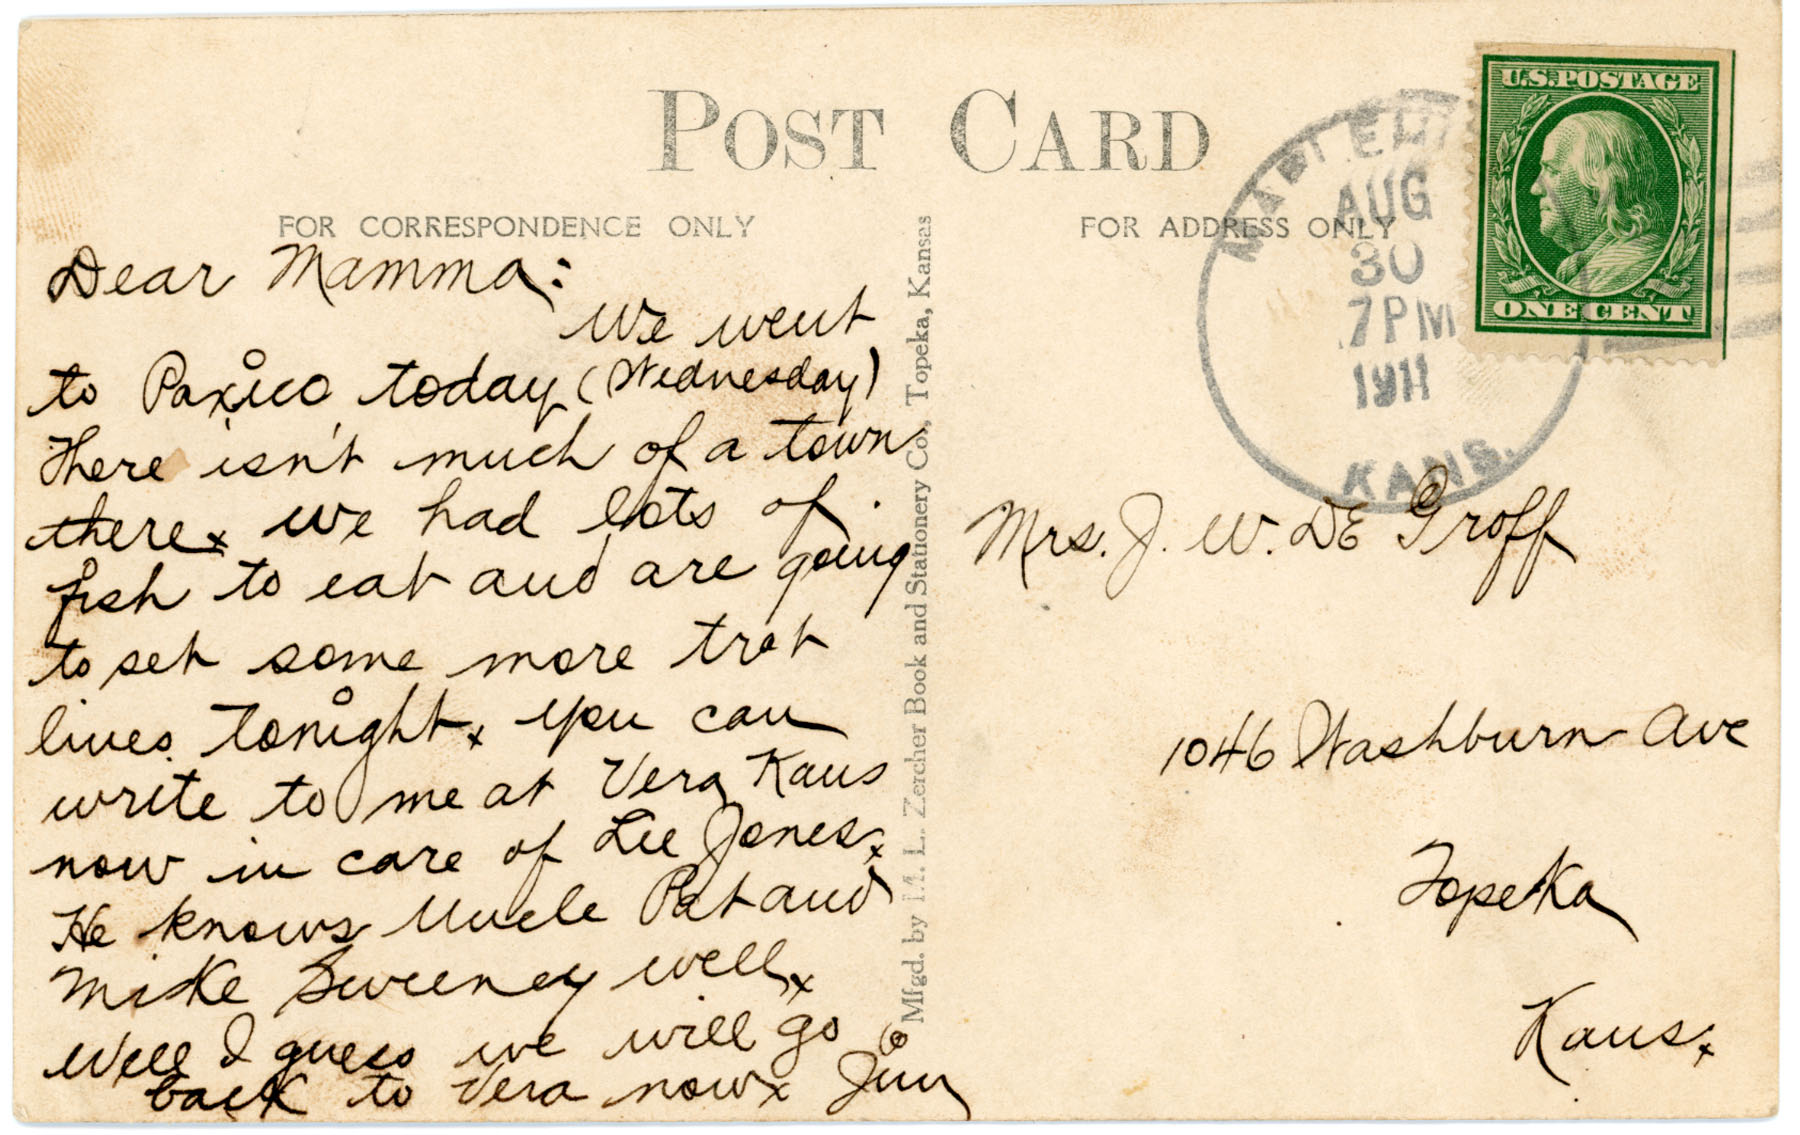 POST CARD
FOR CORRESPONDENCE ONLY
Dear Mamma:
We went
to Paxico today (Wednesday)
There isn't much of a town
there x we had lots of
fish to eat and are going
to set some more trot
lines tonight x you can
write to me at Vera Kans
now in care of Lee Jones x
He knows Uncle Pat and
Mike Sweeney well x
Well I guess we will go
back to Vera now x Jim
Mfgd. by M. L. Zercher Book and Stationery Co., Topeka, Kansas
FOR ADDRESS ONLY
AUG
30
7 PM
1911
KANS.
U.S. POSTAGE
ONE CENT
Mrs. J. W. DE Groff
1046 Washburn Ave
Topeka
Kans x